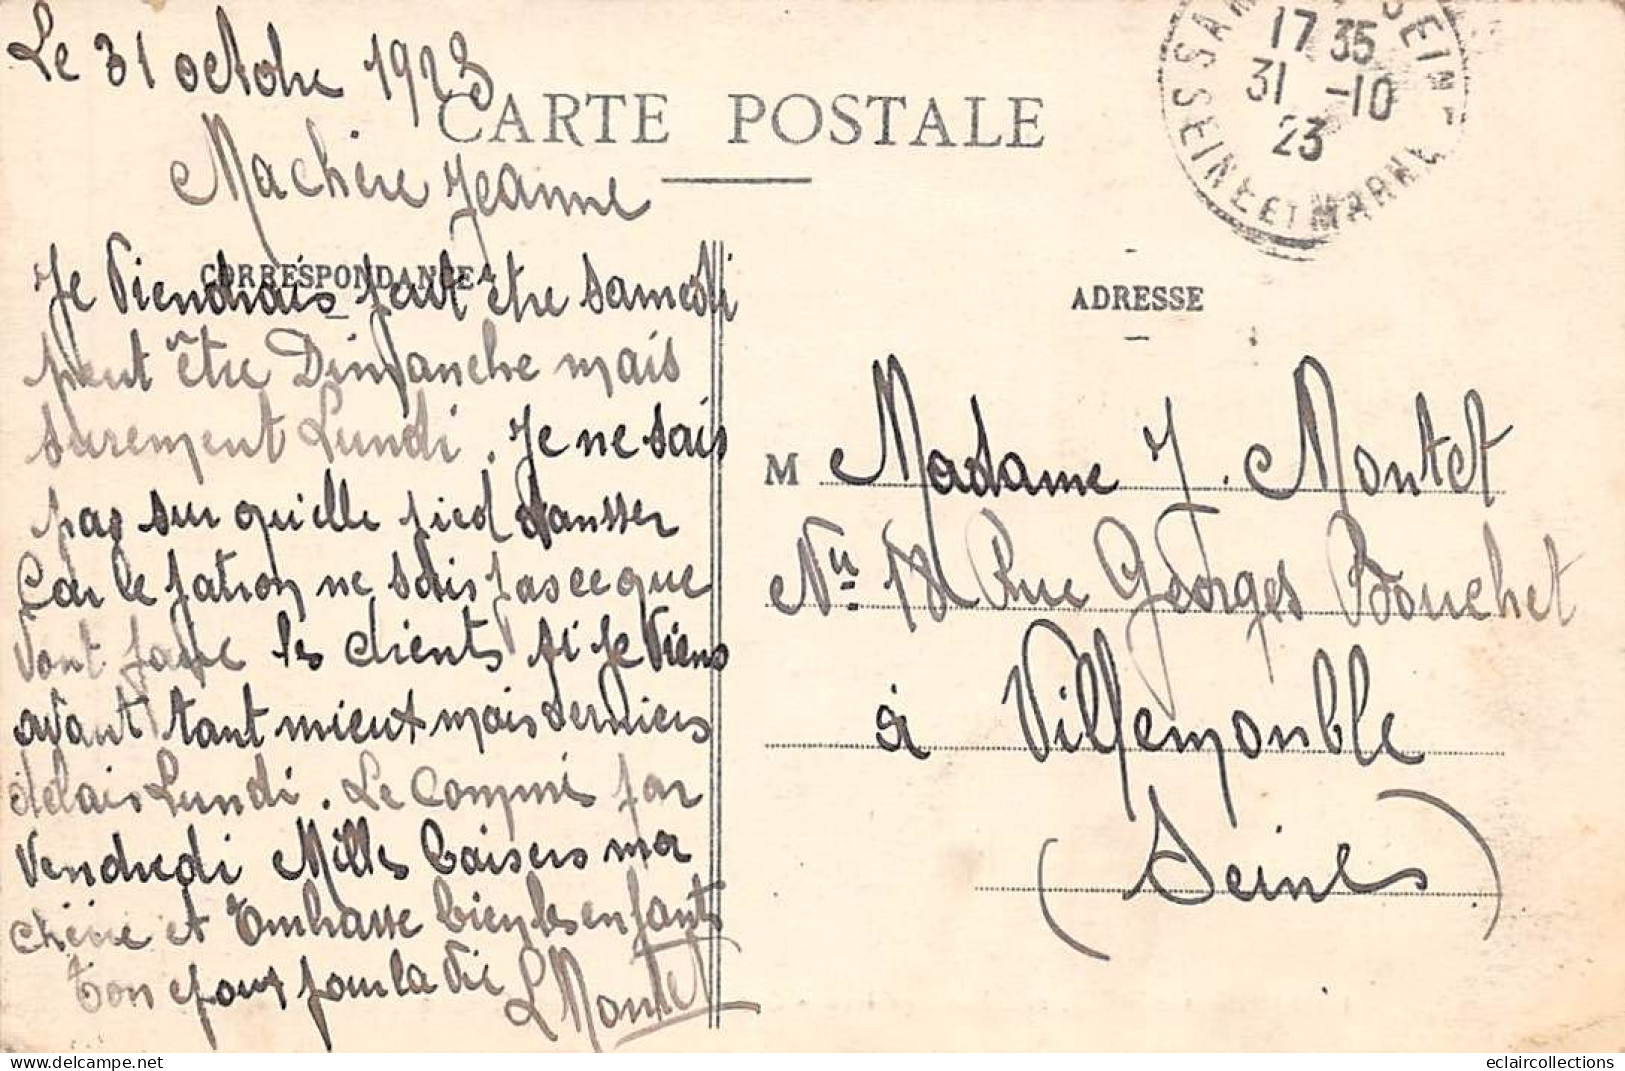 Le 31 octobre 1923
CARTE POSTALE
17 35
31 -10
23
SEINE ET MARNE
Machère Jeanne
CORRESPONDANCE
ADRESSE
Je Viendrais peut être samedi
peut être Dimanche mais
surement Lundi. Je ne sais
pas sur qu'elle pied dansser
Car le patron ne sais pas ce que
Vont faire les clients si je Viens
avant tant mieux mais derniers
delais Lundi. Le commis par
Vendredi Milles baisers ma
chère et Embrasse bien les enfants
Ton epoux pour la vie
L Montet
M Madame J. Montet
No 18 Rue Georges Bouchet
à Villemomble
(Seines)
eclaircollections